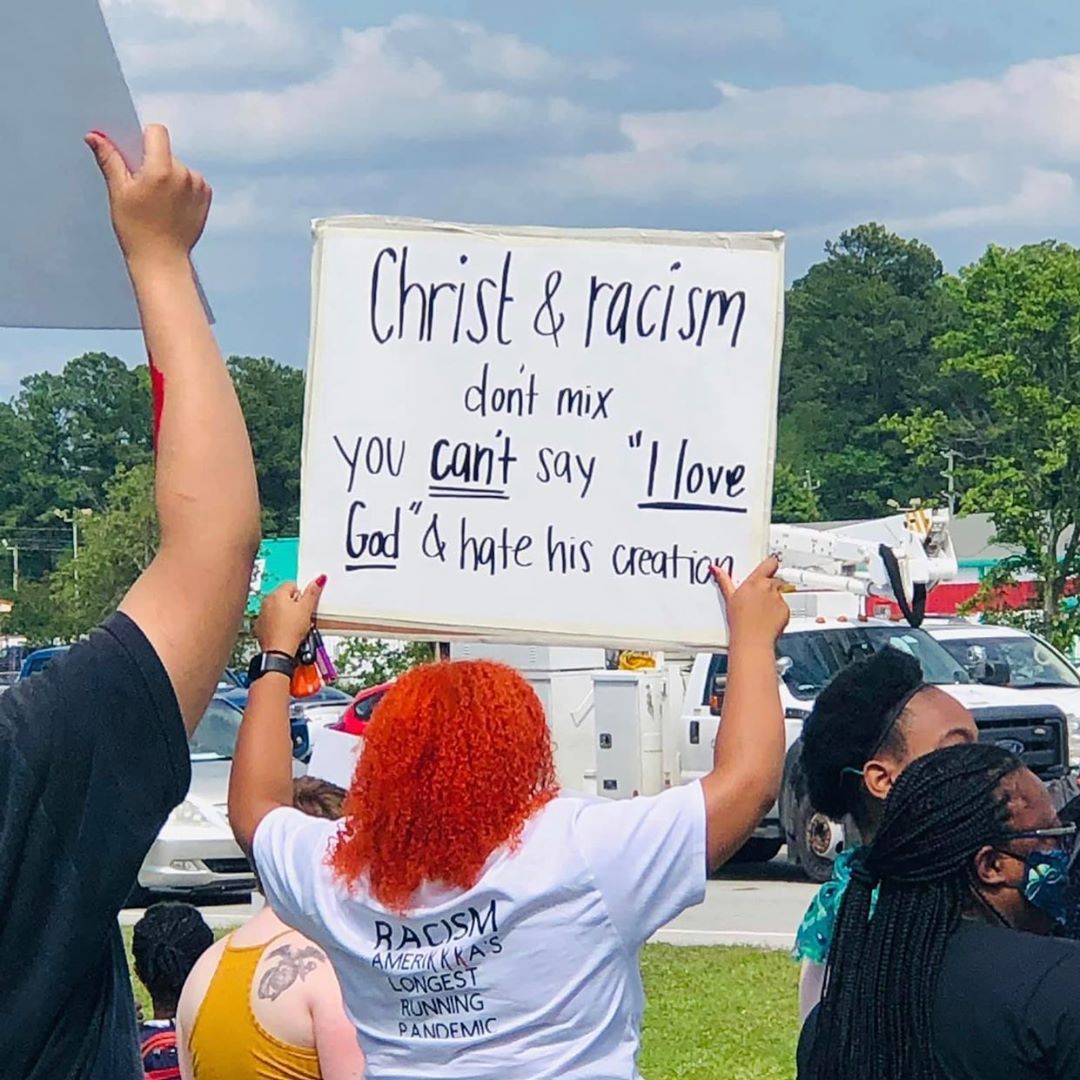 Christ & racism
don't mix
you can't say "I love
God" & hate his creation
RACISM
AMERIKKKA'S
LONGEST
RUNNING
PANDEMIC